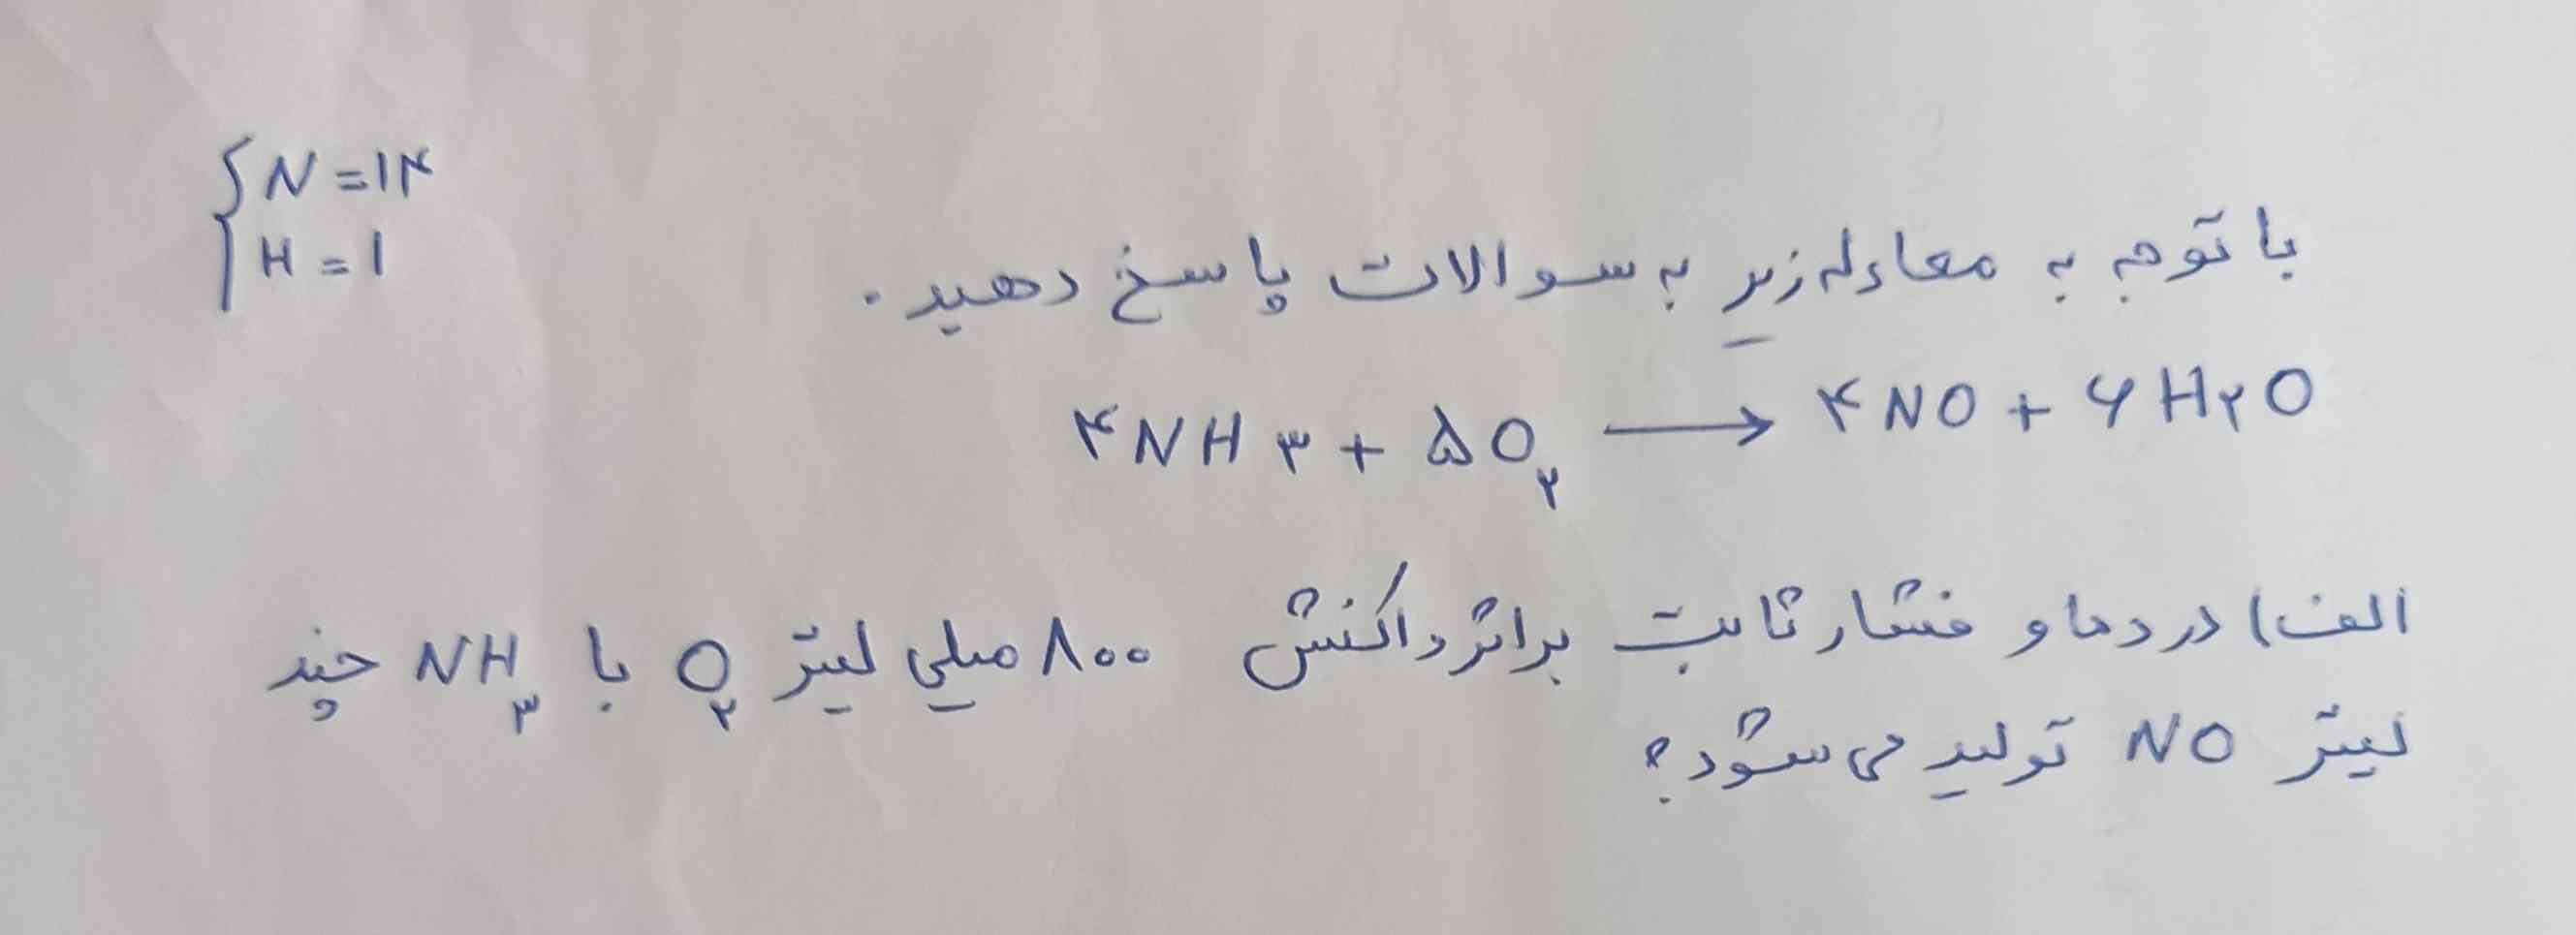 {N = ۱۴
H = ۱
با توجه به معادله زیر به سوالات پاسخ دهید.
۴NH۳ + ۵O۲ → ۴NO + ۶H۲O
الف) در دما و فشار ثابت براثر واکنش ۸۰۰ میلی لیتر O۲ با NH۳ چند
لیتر NO تولید می شود؟